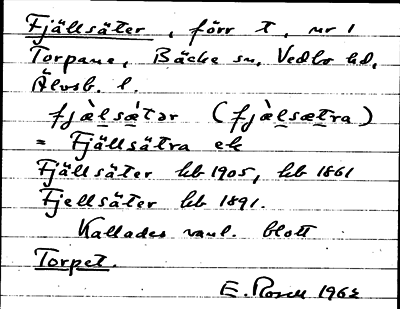 Fjällsäter, förr t, nr 1
Torpane, Bäcke sn, Vedbo hd,
Älvsb. l.
fjä̀lsǽtər (fjæ̀lsætra)
= Fjällsätra ek
Fjällsäter hb 1905, hb 1861
Fjellsäter hb 1891.
Kallades vanl. blott
Torpet.
E. Rosell 1962